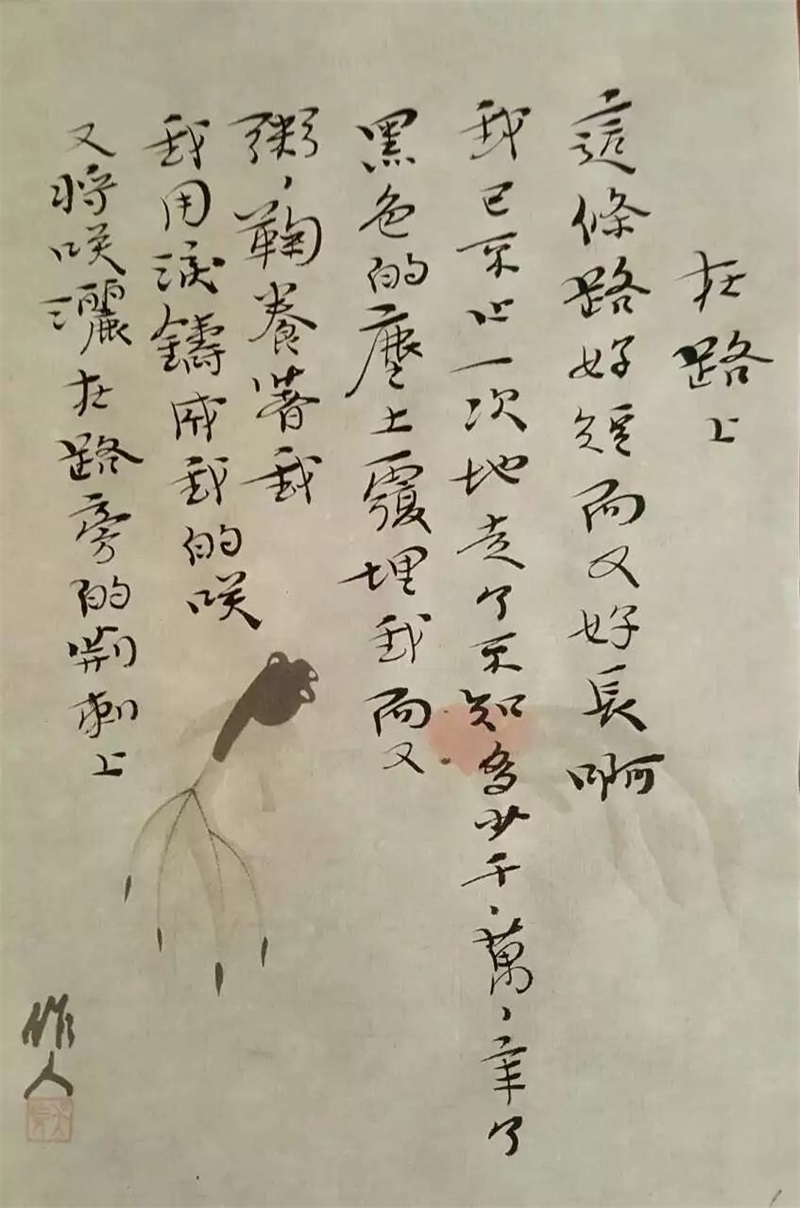 在路上
這條路好短而又好長啊
我已不止一次地走了不知多少千、萬、年了
黑色的塵土覆埋我而又
粥、鞠養著我
我用淚鑄成我的咲
又將咲灑在路旁的荆刺上
作人